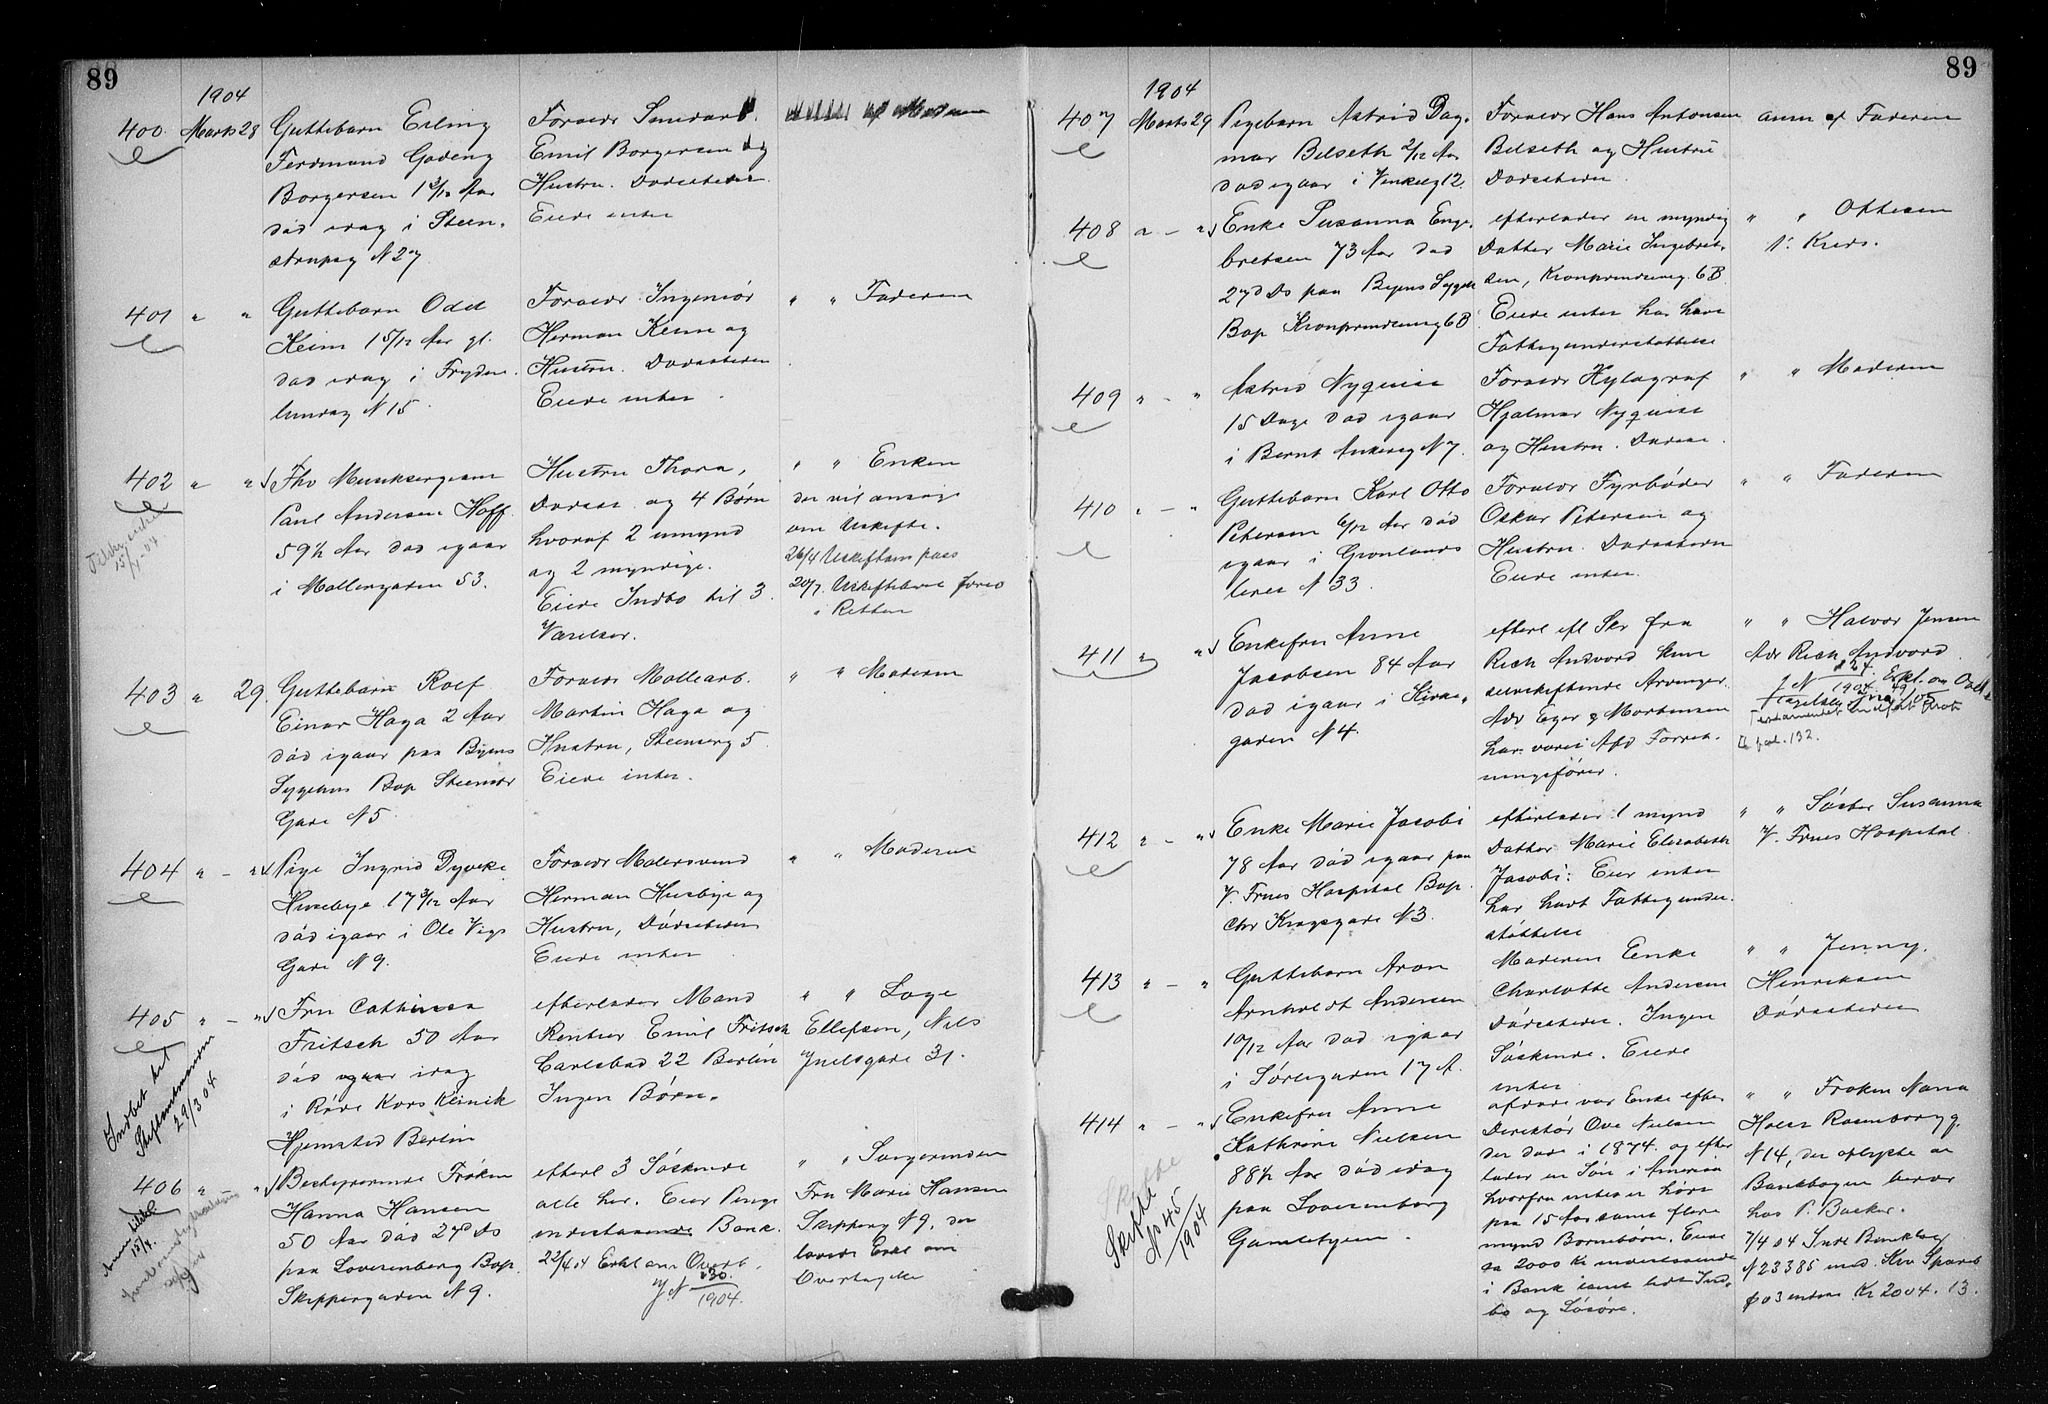 89
1904
400. Marts 28 Guttebarn Erling
Ferdinand Godeng
Borgersen 1 3/12 Aar
død idag i Steen-
strupsg N 27
Forældr Smedarb
Emil Borgersen og
Hustru. Dødsattesten
Eiede intet
af Moderen
401 " " Guttebarn Odd
Keim 1 5/12 Aar gl.
død idag i Fryden-
lundsg N 15
Forældr Ingeniør
Herman Keim og
Hustru. Dødsattesten
Eiede intet
" " Faderen
402 " " Fhv Munksergeant
Paul Andersen Hoff
59 1/2 Aar død igaar
i Møllergaden 53.
Hustru Thora,
Dødsat. og 4 Børn
hvoraf 2 umynd
og 2 myndige.
Eiede Indbo til 3
Værelser.
" " Enken
der vil ansøge
om Uskifte.
26/4 Uskiftebev. pass
20/7. Uskiftebev. forev
i Retten
15/4-04
403 " 29. Guttebarn Rolf
Einar Haga 2 Aar
død igaar paa Byens
Sygehus Bop Steensr
Gade N 5
Forældr Møllearb.
Martin Haga og
Hustru, Steensrg 5
Eiede intet.
" " Moderen
404 " - " Pige Ingrid Dyveke
Husebye 17 3/12 Aar
død igaar i Ole Vigs
Gade N 9.
Forældr Malersvend
Herman Husbye og
Hustru, Dødsattesten
Eiede intet
" " Moderen
405 " - " Fru Cathinca
Fritsch 50 Aar
død igaar idag
i Røde Kors Klinik
Hjemsted Berlin
efterlader Mand
Rentier Emil Fritsch
Carlsbad 22 Berlin
Ingen Børn.
" " Læge
Ellefsen, Nils
Juelsgade 31.
Indbet til
Skiftemanden
29/3 04
406 " " Bestyrerinde Frøken
Hanna Hansen
50 Aar død 27 ds
paa Lovisenberg Bop
Skippergaden N 9.
efterl 3 Søskende
alle her. Eier Penge
indestaaende Bank.
22/4 04 Erkl om Overt.
J N 230/1904.
" " Sangerinden
Fru Marie Hansen
Skipperg N 9, der
lovede Erkl om
Overtagelse
15/4.
89
1904
407 Marts 29 Pigebarn Astrid Dag-
mar Belseth 2/12 Aar
død igaar i Vinkelg 12
Forældr Hans Antonsen
Belseth og Hustru
Dødsattesten
anm af Faderen
408 " - " Enke Susanna Enge-
bretsen 73 Aar død
27 ds paa Byens Sygeh
Bop Kronprindsensg 6B
efterlader en myndig
Datter Marie Ingebret-
sen, Kronprindsensg. 6B
Eiede intet har havt
Fattigunderstøttelse
" " Ottesen
1. Kreds.
409 " - " Astrid Nyquist
15 Dage død igaar
i Bernt Ankersg N 7.
Forældr Xylograf
Hjalmar Nyquist
og Hustru. Dødsat.
" " Moderen
410 " - " Guttebarn Karl Otto
Petersen 6/12 Aar død
igaar i Grønlands
leret N 33
Forældr Fyrbøder
Oskar Petersen og
Hustru. Dødsattesten
Eiede intet.
" " Faderen
411 " " Enkefru Anne
Jacobsen 84 Aar
død igaar i Kirke-
gaden N 4.
efterl efl Skr fra
Rich Andvord kun
selvskiftende Arvinger.
Adv Eger & Mortensen
har været Afd Forret-
ningsfører.
" " Halvor Jensen
Adr Rich Andvord.
J N 824/1904 Erkl. om Overt
fol. 132.
412 " " Enke Marie Jacobi
78 Aar død igaar paa
V. Frues Hospital Bop.
Chr Kroghsgade N 3.
efterlader 1 mynd
Datter Marie Elisabeth
Jacobi. Eier intet
har havt Fattigunder-
støttelse
" " Søster Susanna
V. Frues Hospital
413 " - " Guttebarn Aron
Arnholdt Andersen
10/12 Aar død igaar
i Sørligaden 17 A.
Moderen Enke
Charlotte Andersen
Dødsattesten. Ingen
Søskende. Eiede
intet
" " Jenny
Henriksen
Dødsattesten
414 " - " Enkefru Anne
Kathrine Nielsen
88 1/2 Aar død idag
paa Lovisenberg
Gamlehjem.
afdøde var Enke efter
Direktør Ove Nielsen
der døde i 1874. og efter
lader en Søn i Amerika
hvorfra intet er hørt
paa 15 Aar samt flere
mynd Børnebørn. Eiede
ca 2000 Kr indestaaende
i Bank samt lidt Ind-
bo og Løsøre.
" " Frøken Nana
Holst Rosenborgg.
N 14, der oplyste at
Bankbogen beror
hos P. Backer.
7/4 04 Indl Bankbog
N 23385 med Krv Spareb
paa indest Kr 2004. 13.
Skifte
No 45
1904